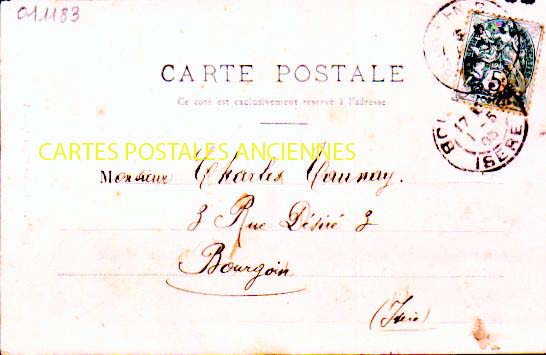 011183
CARTE POSTALE
Ce côté est exclusivement réservé à l'adresse
CARTES POSTALES ANCIENNES
Monsieur Charles
3 Rue Désiré 3
Bourgoin
(Isère)
5
17
ISERE